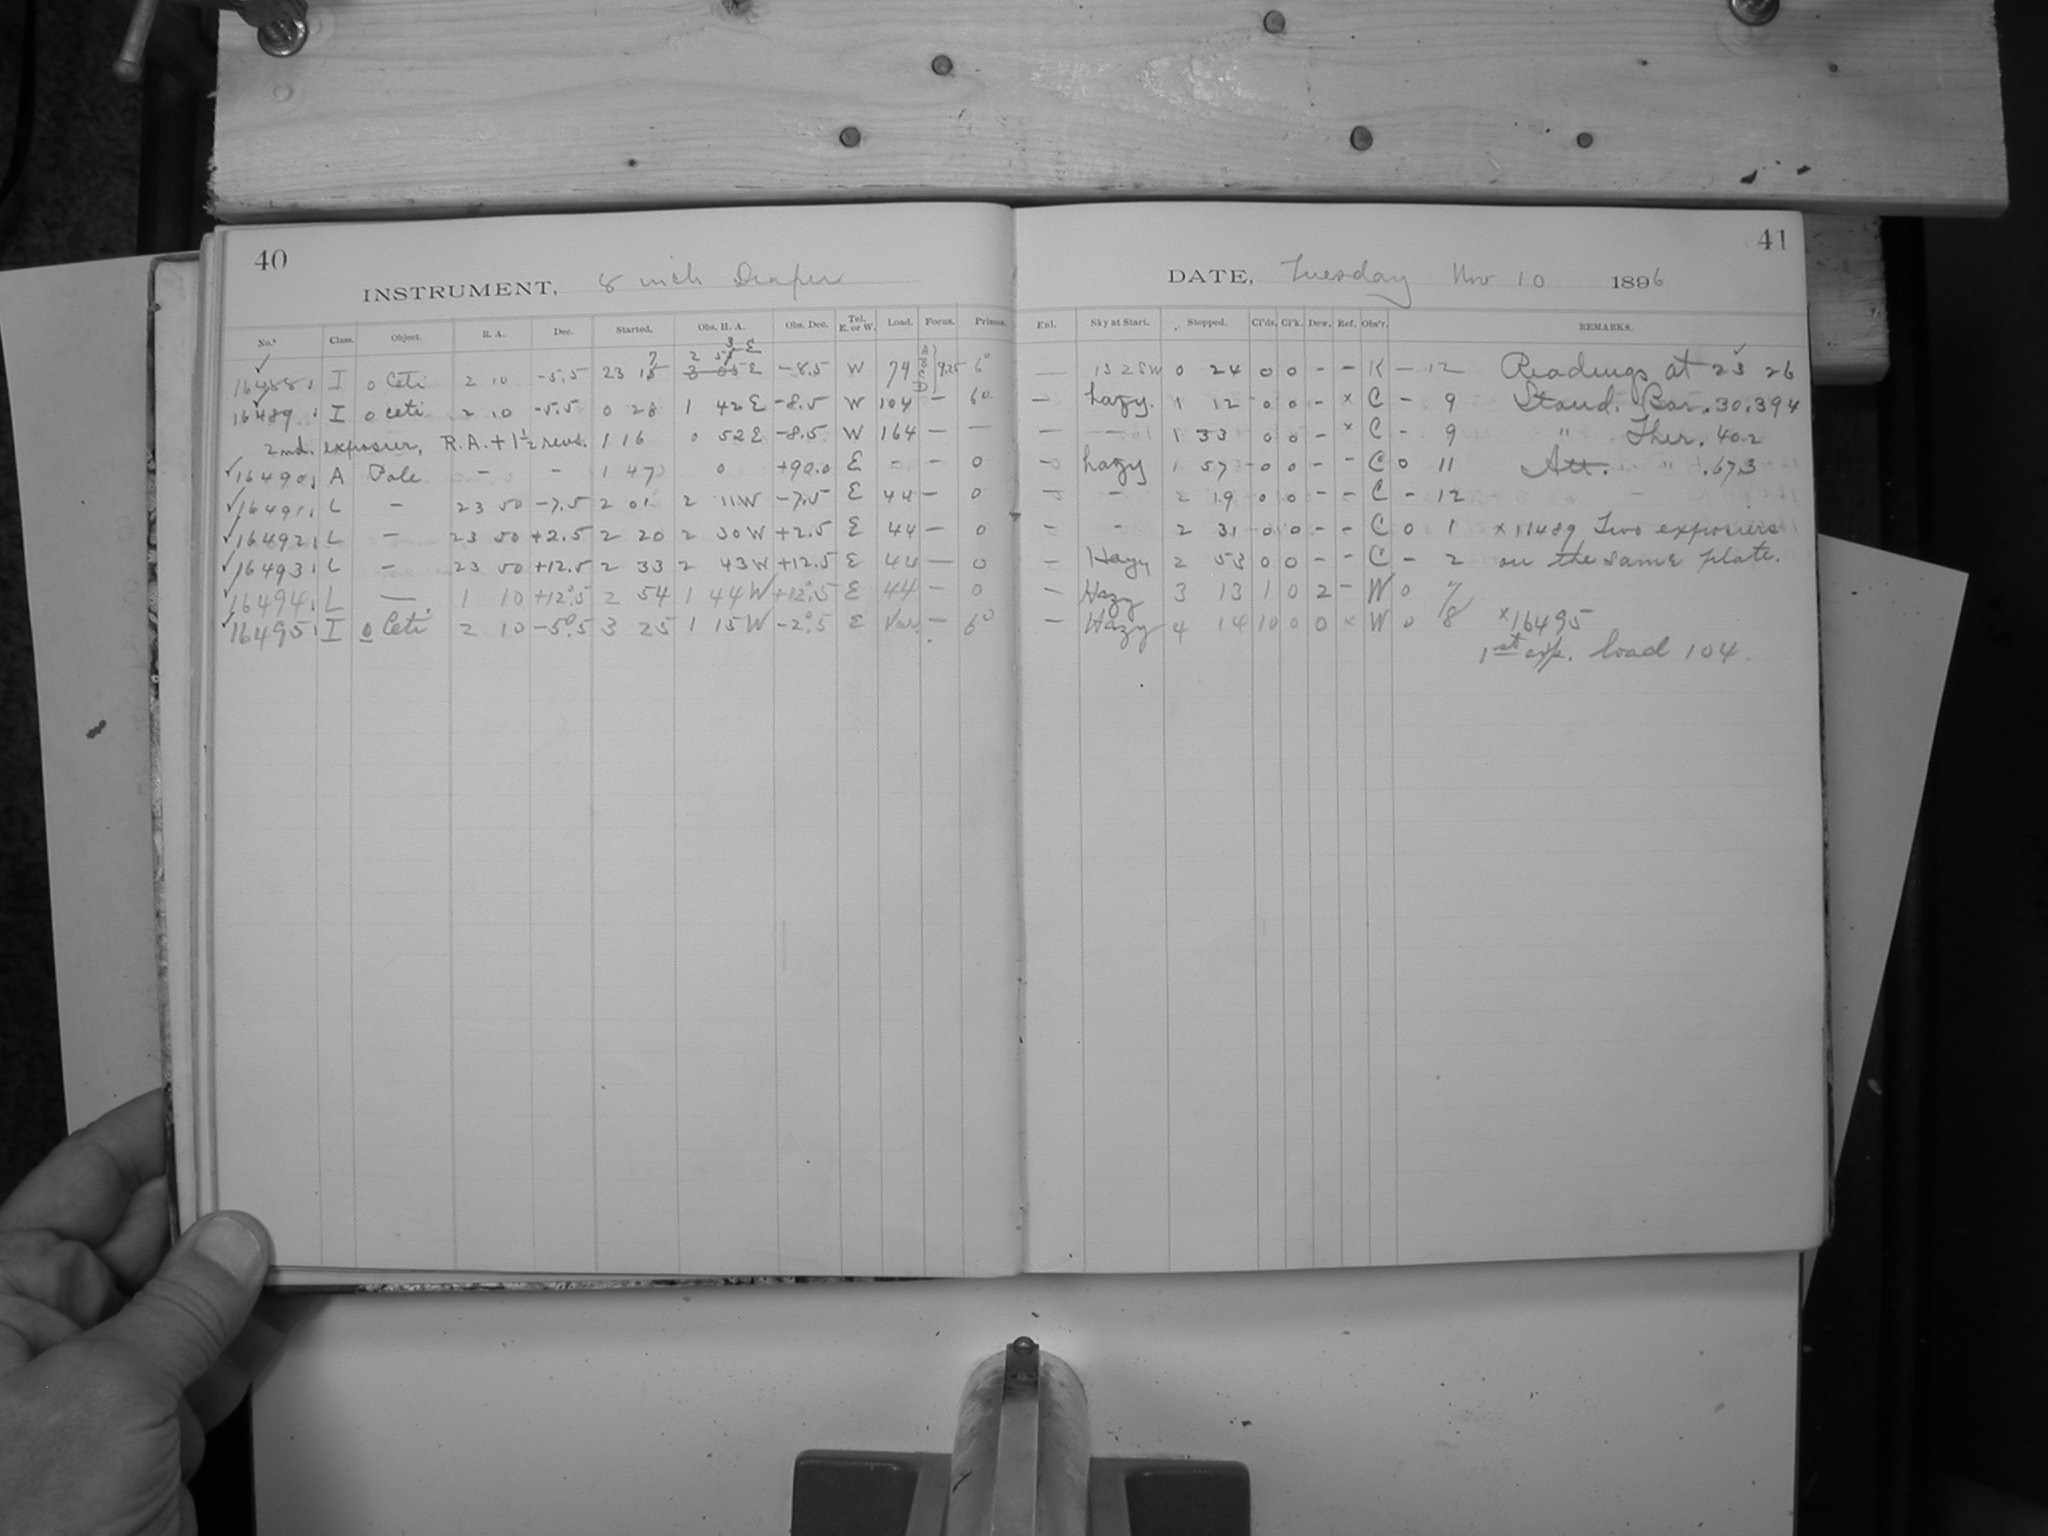 40
INSTRUMENT, 8 inch Draper
No. Class. Object. R. A. Dec. Started. Obs. H. A. Obs. Dec. Tel. E. or W. Load. Focus. Prisms.
16488 I o Ceti 2 10 -5.5 23 15 3 05 E -8.5 W 74 9.25 6°
16489 I o Ceti 2 10 -5.5 0 28 1 42 E -8.5 W 104 - 6°
2nd. exposier, R.A. + 1 1/2 revs. 1 16 0 52 E -8.5 W 164 - -
16490 A Pole - - 1 47 0 +90.0 E - - 0
16491 L - 23 50 -7.5 2 01 2 11 W -7.5 E 44 - 0
16492 L - 23 50 +2.5 2 20 2 30 W +2.5 E 44 - 0
16493 L - 23 50 +12.5 2 33 2 43 W +12.5 E 44 - 0
16494 L - 1 10 +12°.5 2 54 1 44 W +12°.5 E 44 - 0
16495 I o Ceti 2 10 -5°.5 3 25 1 15 W -2°.5 E Var. - 6°
41
DATE, Tuesday Nov 10 1896
Enl. Sky at Start. Stopped. Cl'ds. Cl'k. Dew. Ref. Obs'r. REMARKS.
- 0 24 0 0 - - K - 12 Readings at 23 26
- hazy. 1 12 0 0 - x C - 9 Stand. Bar. 30.394
- - 1 33 0 0 - x C - 9 " Ther. 40.2
- hazy 1 57 0 0 - - C 0 11 Att. " .673
- - 2 19 0 0 - - C - 12
- - 2 31 0 0 - - C 0 1 x 11489 Two exposiers
- Hazy 2 53 0 0 - - C - 2 on the same plate.
- Hazy 3 13 1 0 2 - W 0 7
- Hazy 4 14 10 0 0 x W 0 8 x16495
1st exp. load 104.